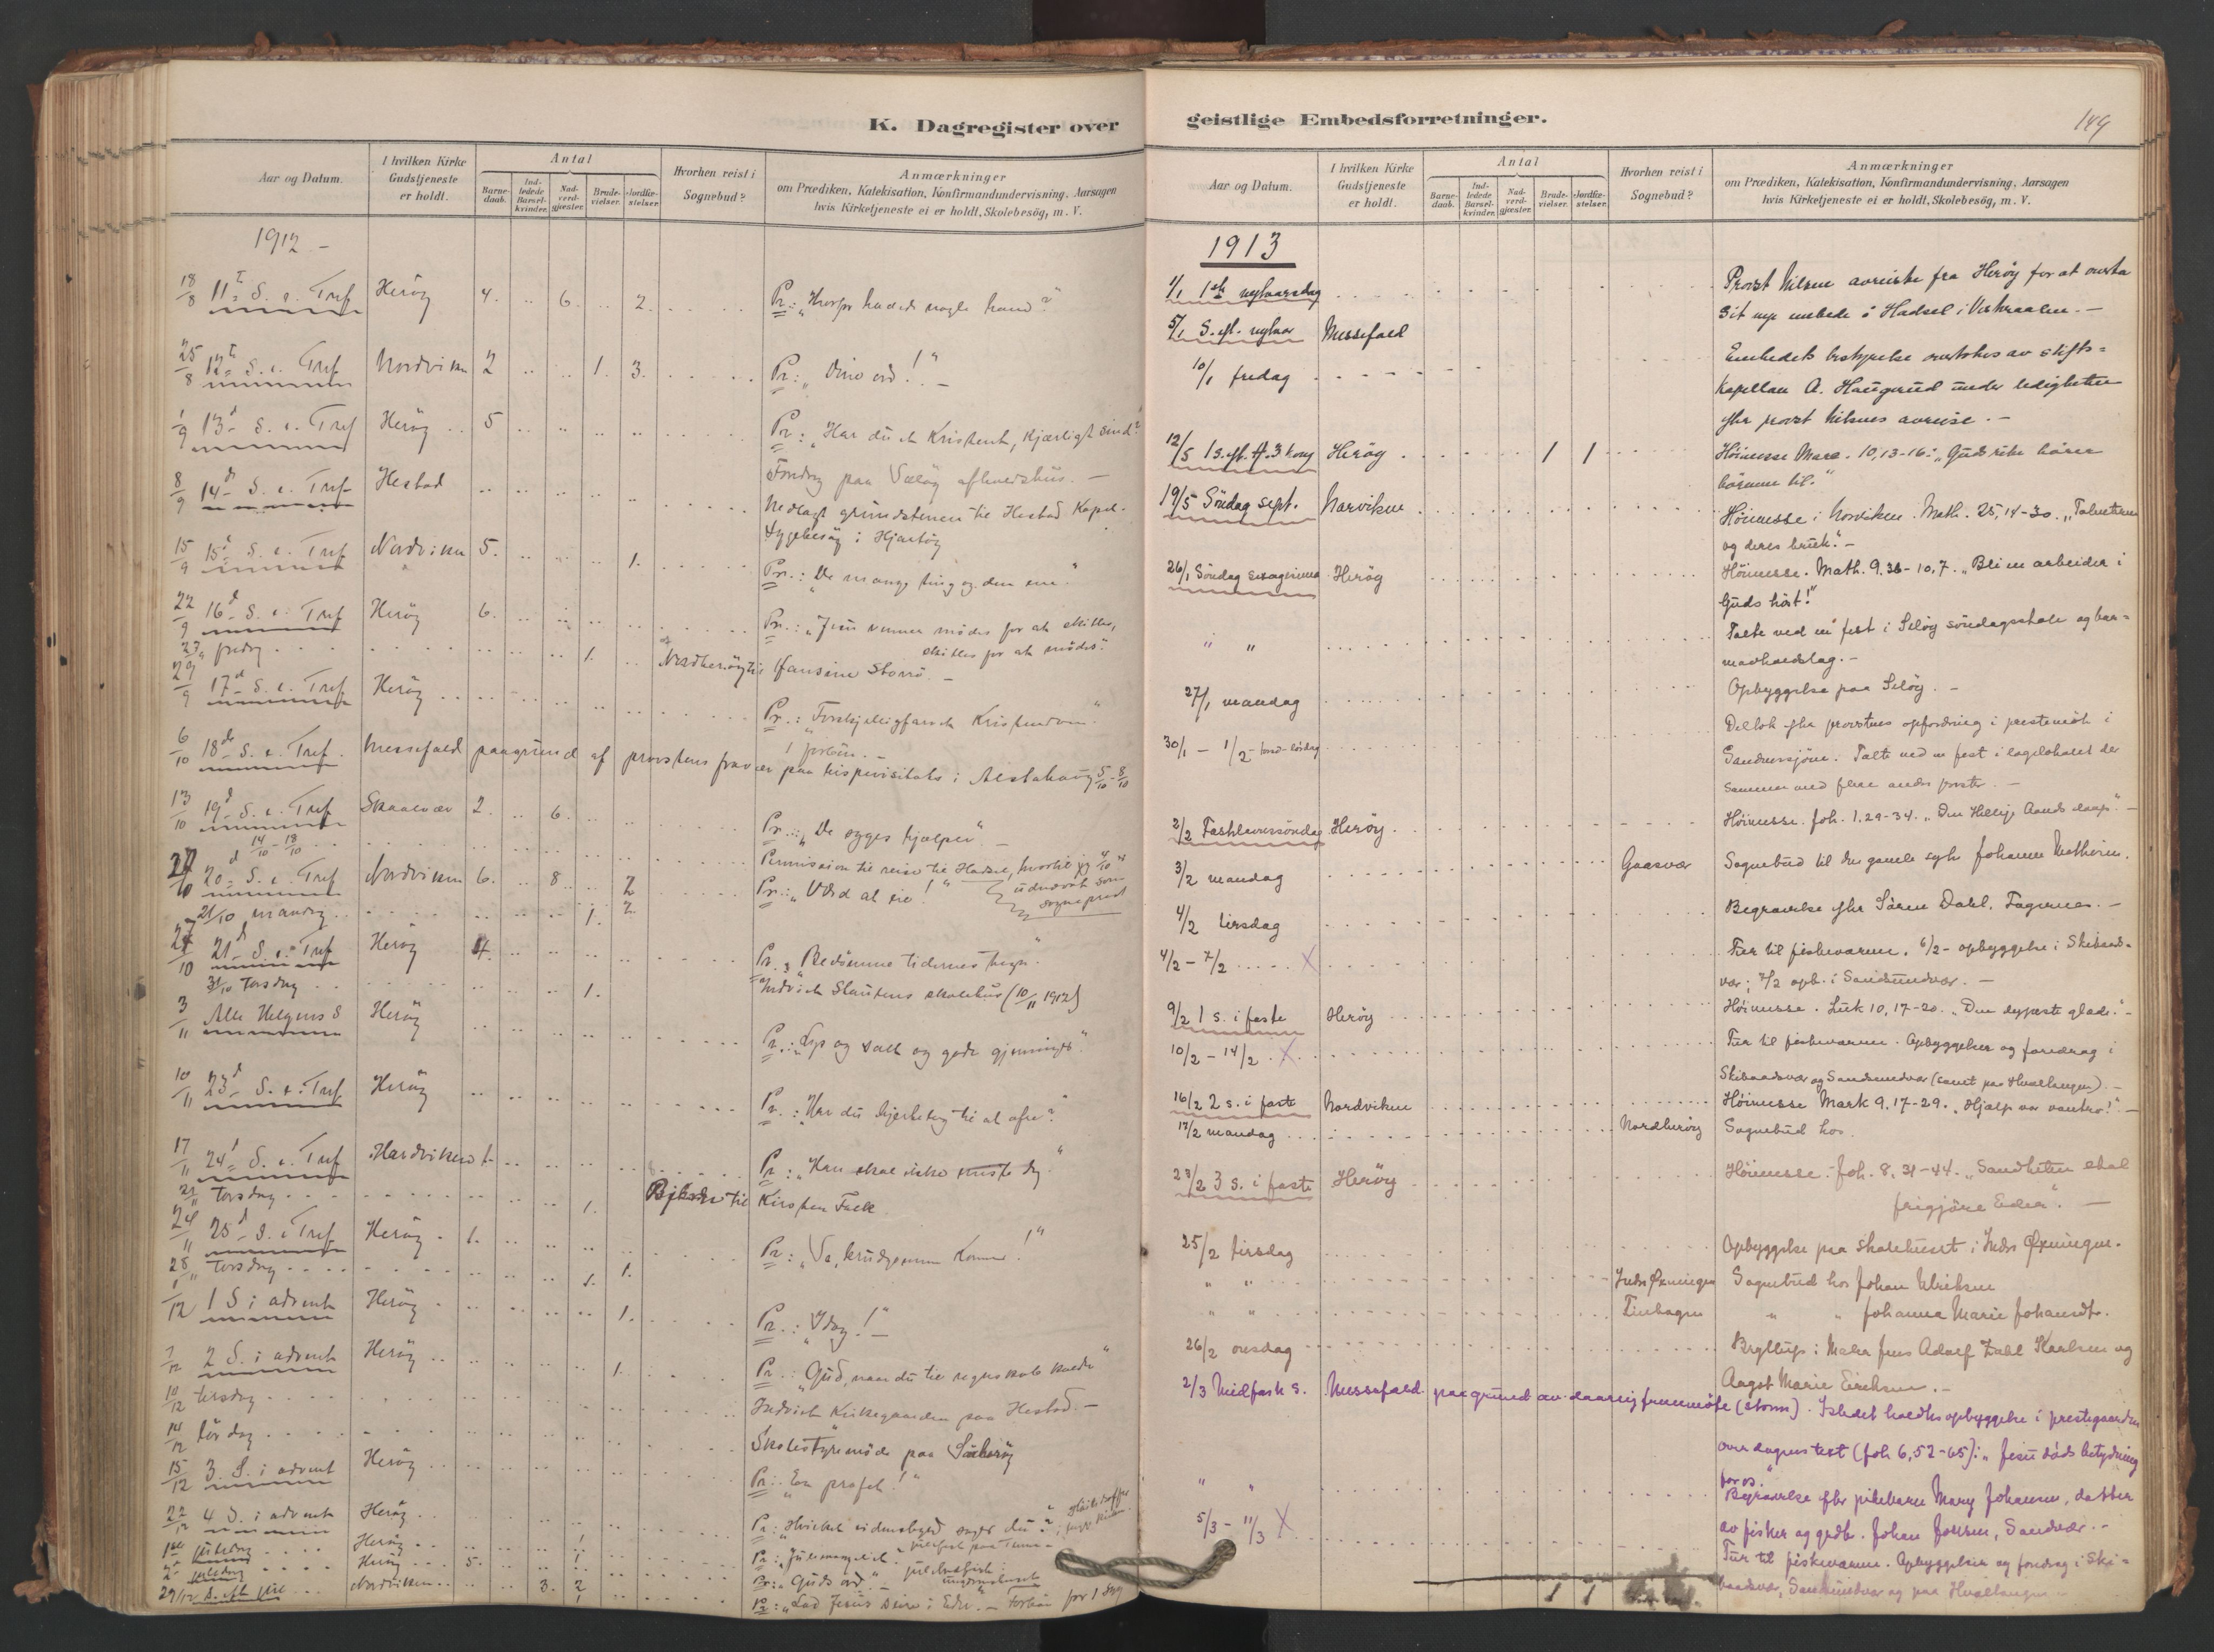 K. Dagregister over
Aar og Datum.
I hvilken Kirke Gudstjeneste er holdt.
Antal
Barne-daab.
Ind-ledede Barsel-kvinder.
Nad-verd-gjæster.
Brude-vielser.
Jordfæ-stelser.
Hvorhen reist i Sognebud?
Anmærkninger
om Prædiken, Katekisation, Konfirmandundervisning, Aarsagen
hvis Kirketjeneste ei er holdt, Skolebesøg, m. V.
1912 -
18/8 11te S. e. Tref Herøy 4. 6. 2. Pr:
25/8 12te S. e. Tref Nordviken 2 1. 3. Pr: "Dine ord!" -
1/9 13de S. e. Tref Herøy 5 Pr: "Har du et Kristent, kjærligt sind?"
8/9 14de S. e. Tref Hestad Foredrag paa
Nedlagt grundstenen til Hestad Kapel.
Sygebesøg i Hjartøy
15/9 15de S. e. Tref Nordviken 5. 1. Pr.: "De mange ting og den ene."
22/9 16de S. e. Tref Herøy 6. Pr.: "Jesu venner mødes for at skilles,
skilles for at mødes."
27/" fredag 1. Nordherøy til Hansine Storrø. -
29/9 17de S. e. Tref Herøy Pr.: Kristendom."
6/10 18de S. e. Tref. Messefald paagrund af provstens fravær paa bispevisitats i Alstahaug 5/10-8/10
13/10 19de S. e. Tref Skaalvær 2. 6. Pr.: "De syges hjælper" -
14/10 - 18/10 Permission til reise til Hadsel, hvortil jeg 4/10
udnævnt som
sogneprest
20/10 20de S. e. Tref Nordviken 6. 8 2 Pr.: "Værd at eie!"
21/10 mandag 1. 2.
27/10 21de S. e. Tref Herøy 4. Pr. "Bedømme tidernes tegn".
31/10 Torsdag 1. Indviet skolehus (10/11 1912)
3/11 Alle Helgens S Herøy Pr.: "Lys og salt og gode gjerninger".
10/11 23de S. e. Tref Herøy Pr.: "Har du hjertelag til at ofre?"
17/11 24de S. e. Tref Pr: "Han skal ikke miste dig."
21/" Torsdag 1. til Kirsten Falk
24/11 25de S. e. Tref Herøy 1. Pr: "Se, brudgommen kommer!"
28/" Torsdag 1. 1.
1/12 1 S i advent Herøy 1. Pr.: "Idag!" -
7/12 2 S. i advent Herøy 1. Pr.: "Gud, naar du til regnskab kalder"
10/12 tirsdag Indviet Kirkegaarden paa Hestad. -
14/12 lørdag Skolestyremøde paa Sørherøy
15/12 3. S. i advent Herøy Pr: "En profet!"
22/12 4 S. i advent Herøy Pr: "Hvilket vidnesbyrd siger du?"
1ste juledag Herøy 1 Pr: "Juleevangeliet."
2. juledag Herøy 5. 1. Pr: "Guds ord" -
29/12 S. eft jul Nordviken 3. 2 Pr: "Lad Jesus seire i Eder. -
geistlige Embedsforretninger.
149
Aar og Datum.
I hvilken Kirke Gudstjeneste er holdt.
Antal
Barne-daab.
Ind-ledede Barsel-kvinder.
Nad-verd-gjæster.
Brude-vielser.
Jordfæ-stelser.
Hvorhen reist i Sognebud?
Anmærkninger
om Prædiken, Katekisation, Konfirmandundervisning, Aarsagen
hvis Kirketjeneste ei er holdt, Skolebesøg, m. V.
1913
1/1 1ste nytaarsdag Provst Nilsen avreiste fra Herøy for at overta
sit nye embede i Hadsel i Vesteraalen. -
5/1 S. eft. nytaar Messefald
10/1 fredag Embedets bestyrelse overtokes av stifts=
kapellan A. Haugerud under ledigheten
efter provst Nilsens avreise. -
12/5 1 S. eft. H. 3 kong Herøy 1 1 Høimesse Marc. 10,13-16: "Guds rike hører
børnene til."
19/5 Søndag sept. Norviken Høimesse i Norviken. Math. 25,14-30. "Talenterne
og deres bruk." -
26/1 Søndag sexagesima Herøy Høimesse. Math. 9.36-10.7. "Bli en arbeider i
Guds høst!"
" " Talte ved en fest i Seløy søndagsskole og bar=
mavholdslag. -
27/1 mandag Opbyggelse paa Seløy. -
30/1 - 1/2 - tors-lørdag Deltok efter provstens opfordring i prestemøte i
Sandnessjøen. Talte ved en fest i logelokalet der
sammen med flere andre prester. -
2/2 Fastelavnssøndag Herøy Høimesse. Joh. 1.29-34. "Den Hellige Aands daap." -
3/2 mandag Gaasvær Sognebud til den gamle syke Johanna
4/2 tirsdag Begravelse efter Søren Dahl. Tagernes. -
4/2 - 7/2 X Tur til fiskeværene. 6/2 - opbyggelse i Skibaads=
vær; 7/2 opb. i Sandsundvær. -
9/2 1 S. i faste Herøy Høimesse. Luk 10,17-20. "Den dypeste glæde." -
10/2 - 14/2 X Tur til fiskeværene. Opbyggelser og foredrag i
Skibaadsvær og Sandsundvær (samt paa Hvallangen). -
16/2 2 s. i faste Nordviken Høimesse Mark 9,17-29. "Hjælp vor vantro!" -
17/2 mandag Nordherøy Sognebud hos.
23/2 3 S. i faste Herøy Høimesse - Joh. 8,31-44. "Sandheten skal
frigjøre Eder". -
25/2 tirsdag Opbyggelse paa skolehuset i Indre Øxningen.
" " Indre Øxningen Sognebud hos Johan Ulriksen
" " " " Johanna Marie Johansdtr.
26/2 onsdag Bryllup i Jens Adolf Dahl Karlsen og
Aagot Marie Eriksen. -
2/3 Midfaste s. Messefald paa grund av daarlig fremmøte (storm). Istedet holdtes opbyggelse i prestegaarden
over dagens text (Joh 6,52-65): "Jesu døds betydning
for os."
" " Begravelse efter pikebarn Mary Johansen, datter
av fisker og grdb. Johan Sandvær. -
5/3 - 11/3 X Tur til fiskeværene. Opbyggelser og foredrag i Ski=
baadsvær, Sandsundvær og paa Hvallangen
1 1